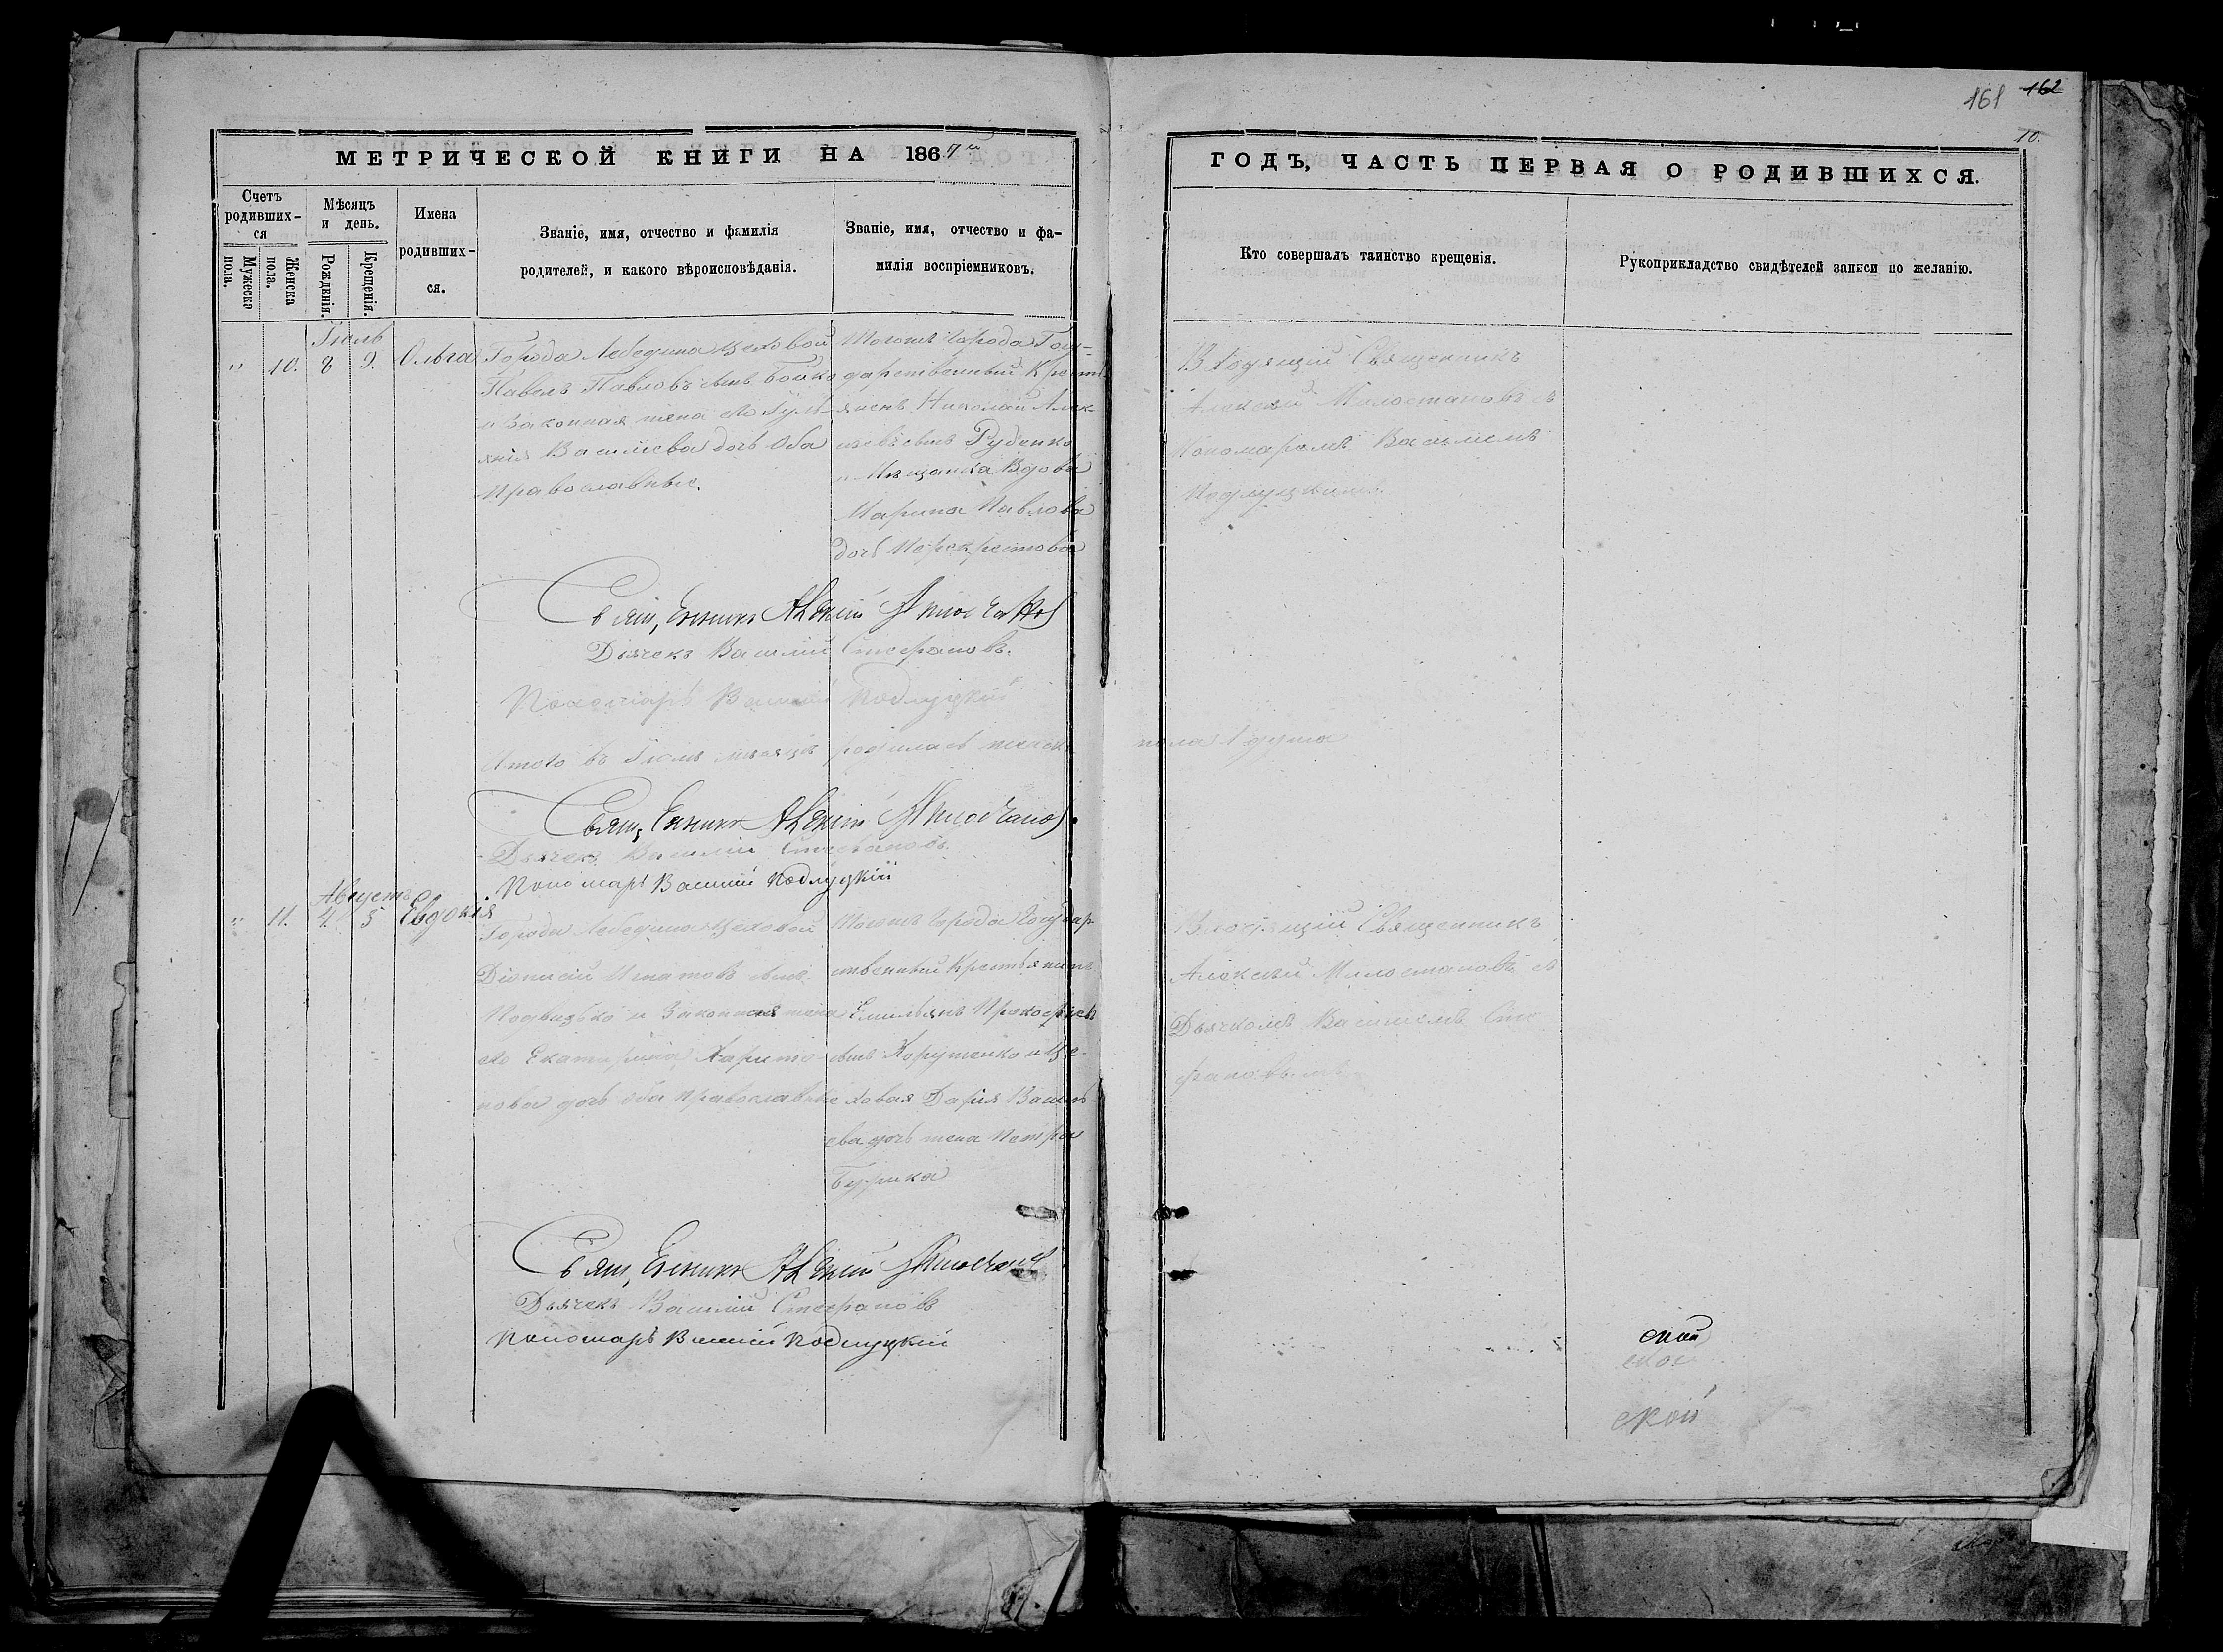 161 162
10.
МЕТРИЧЕСКОЙ КНИГИ НА 1867
ГОДЪ, ЧАСТЬ ПЕРВАЯ О РОДИВШИХСЯ.
Счетъ
родивших-
ся
Мужеска
пола.
Женска
пола.
Мѣсяцъ
и день.
Рожденія.
Крещенія.
Имена
родивших-
ся.
Званіе, имя, отчество и фамилія
родителей, и какого вѣроисповѣданія.
Званіе, имя, отчество и фа-
милія воспріемниковъ.
Кто совершалъ таинство крещенія.
Рукоприкладство свидѣтелей записи по желанію.
Іюль
" 10. 8 9. Ольга
Города Лебедина Цеховой
Павелъ Павловъ сынъ Бойко
и Законная жена его Іулі-
анія Василіева дочь Оба
Православные.
Тогожъ Города Госу-
дарственный Крестья-
янинъ Николай Алек-
сѣевъ сынъ Руденко
и Мѣщанка Вдова
Марина Павлова
дочь Перекрестова
Входящій Священникъ
Алексій Милостановъ съ
Пономаремъ Василіемъ
Подлуцкимъ.
Священникъ Алексій Милостановъ
Дьячекъ Василій Стефановъ.
Пономарь Василій Подлуцкій
Итого въ Іюлѣ мѣсяцѣ родилась женск. пола 1 душа
Священникъ Алексій Милостановъ
Дьячекъ Василій Стефановъ.
Пономарь Василій Подлуцкій
Августъ
" 11. 4. 5 Евдокія
Города Лебедина Цеховой
Діонисій Игнатовъ сынъ
и Законная жена
его Екатерина Харито-
нова дочь оба православные
Тогожъ Города Государ-
ственный Крестьянинъ
Емильянъ Прокофіевъ
сынъ и Це-
ховая Дарія Василь-
ева дочь жена Петра
Бурика
Входящій Священникъ
Алексій Милостановъ съ
Дьячкомъ Василіемъ Сте-
фановымъ
Священникъ Алексій Милостановъ
Дьячекъ Василій Стефановъ
Пономарь Василій Подлуцкій
ской
ской
ской